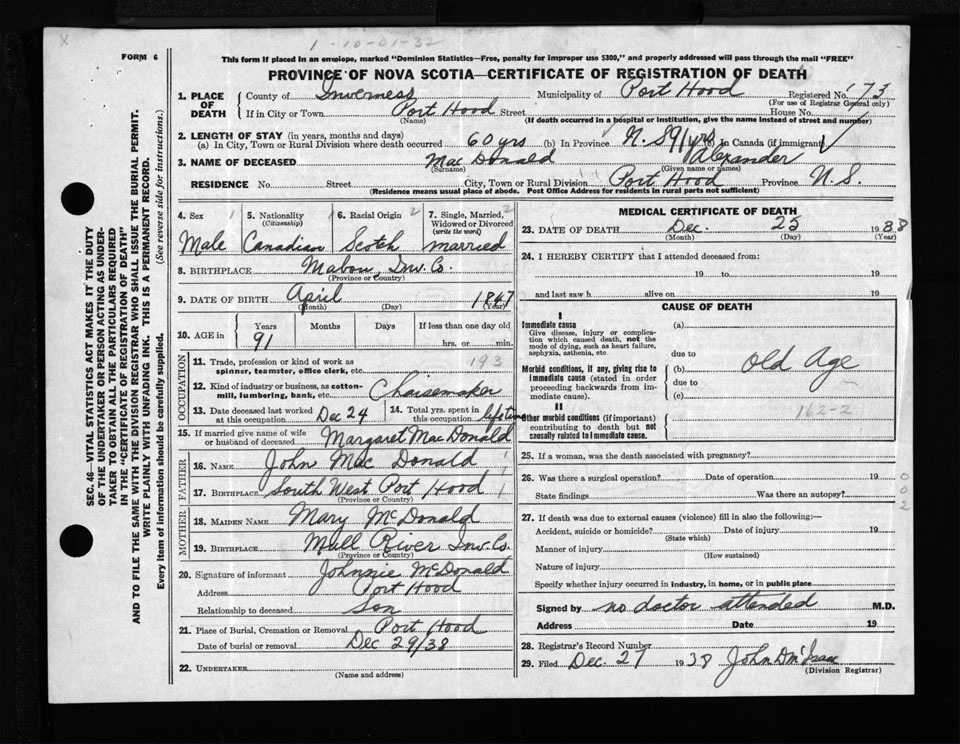 1-10-01-32
FORM 6
This form if placed in an envelope, marked "Dominion Statistics—Free, penalty for improper use $300," and properly addressed will pass through the mail "FREE"
PROVINCE OF NOVA SCOTIA—CERTIFICATE OF REGISTRATION OF DEATH
1. PLACE OF DEATH
County of Inverness Municipality of Port Hood Registered No. 173
(For use of Registrar General only)
If in City or Town Port Hood Street House No.
(Name) (If death occurred in a hospital or institution, give the name instead of street and number)
2. LENGTH OF STAY (in years, months and days)
(a) In City, Town or Rural Division where death occurred 60 yrs (b) In Province N.S 91 yrs (c) In Canada (if immigrant)
3. NAME OF DECEASED Mac Donald Alexander
(Surname) (Given name or names)
RESIDENCE No. Street City, Town or Rural Division Port Hood Province N.S.
(Residence means usual place of abode. Post Office Address for residents in rural parts not sufficient)
SEC. 46—VITAL STATISTICS ACT MAKES IT THE DUTY
OF THE UNDERTAKER OR PERSON ACTING AS UNDER-
TAKER TO OBTAIN ALL THE PARTICULARS REQUIRED
IN THE "CERTIFICATE OF REGISTRATION OF DEATH"
AND TO FILE THE SAME WITH THE DIVISION REGISTRAR WHO SHALL ISSUE THE BURIAL PERMIT.
WRITE PLAINLY WITH UNFADING INK. THIS IS A PERMANENT RECORD.
Every item of information should be carefully supplied. (See reverse side for instructions.)
4. Sex
Male
5. Nationality
(Citizenship)
Canadian
6. Racial Origin
Scotch
7. Single, Married,
Widowed or Divorced
(write the word)
married
8. BIRTHPLACE Mabou, Inv. Co.
(Province or Country)
9. DATE OF BIRTH April 1847
(Month) (Day) (Year)
10. AGE in
Years Months Days If less than one day old
91 hrs. or min.
OCCUPATION
11. Trade, profession or kind of work as
spinner, teamster, office clerk, etc. 193
12. Kind of industry or business, as cotton-
mill, lumbering, bank, etc. Chaisemaker
13. Date deceased last worked
at this occupation Dec 24
14. Total yrs. spent in
this occupation lifetime
15. If married give name of wife
or husband of deceased Margaret Mac Donald
FATHER
16. NAME John Mac Donald
17. BIRTHPLACE South West Port Hood
(Province or Country)
MOTHER
18. MAIDEN NAME Mary McDonald
19. BIRTHPLACE Mull River Inv. Co.
(Province or Country)
20. Signature of informant Johnnie McDonald
Address Port Hood
Relationship to deceased Son
21. Place of Burial, Cremation or Removal Port Hood
Date of burial or removal Dec 29/38
22. UNDERTAKER
(Name and address)
MEDICAL CERTIFICATE OF DEATH
23. DATE OF DEATH Dec. 25 1938
(Month) (Day) (Year)
24. I HEREBY CERTIFY that I attended deceased from:
19 to 19
and last saw h alive on 19
CAUSE OF DEATH
I
Immediate cause
Give disease, injury or complica-
tion which caused death, not the
mode of dying, such as heart failure,
asphyxia, asthenia, etc.
Morbid conditions, if any, giving rise to
immediate cause (stated in order
proceeding backwards from im-
mediate cause).
II
Other morbid conditions (if important)
contributing to death but not
causally related to immediate cause.
(a)
due to
(b) Old Age
due to
(c)
162-2
25. If a woman, was the death associated with pregnancy?
26. Was there a surgical operation? Date of operation 19
State findings Was there an autopsy?
002
27. If death was due to external causes (violence) fill in also the following:—
Accident, suicide or homicide? Date of injury 19
(State which)
Manner of injury
(How sustained)
Nature of injury
Specify whether injury occurred in industry, in home, or in public place
Signed by no doctor attended M.D.
Address Date 19
28. Registrar's Record Number
29. Filed Dec. 27 1938 John D McIsaac
(Division Registrar)